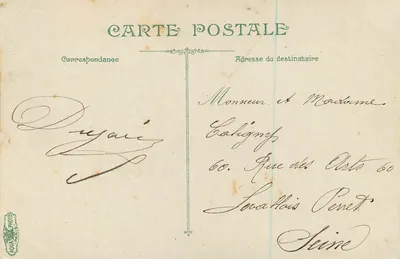 CARTE POSTALE
Correspondance
Adresse du destinataire
Monsieur et Madame
60. Rue des Arts 60
Levallois Perret
Seine